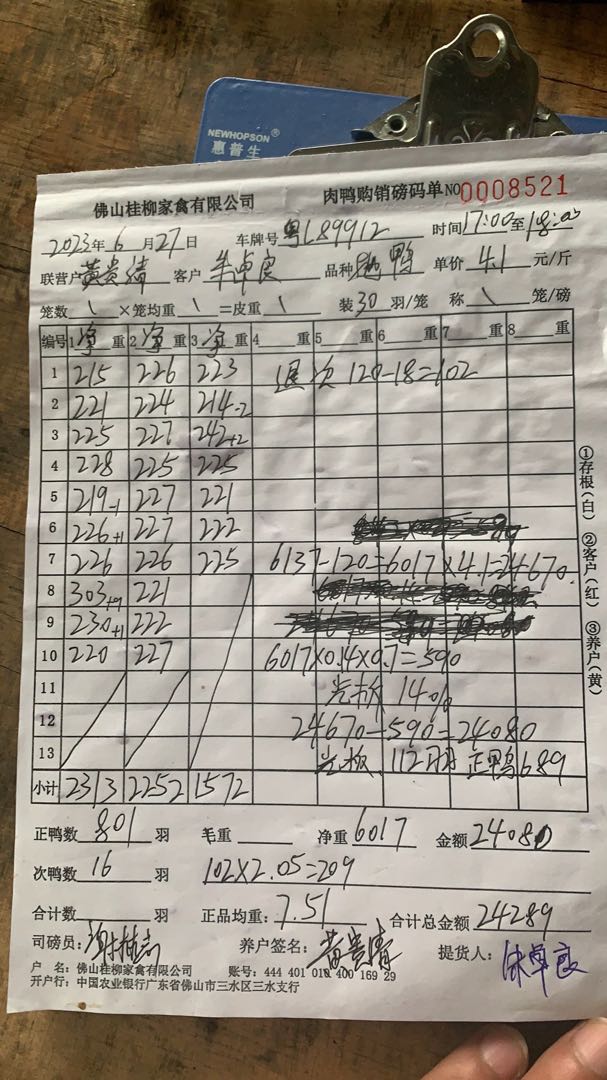 NEWHOPSON®
惠普生
佛山桂柳家禽有限公司 肉鸭购销磅码单 NO 0008521
2023年 6月27日 车牌号 粤L89912 时间17:00至18:00
联营户 黄贵清 客户 卓良 品种 鸭 单价 4.1 元/斤
笼数 \ ×笼均重 \ =皮重 \ 装30羽/笼 称 \ 笼/磅
编号 1净重 2净重 3净重 4 重 5 重 6 重 7 重 8 重
1 215 226 223 退次 120-18=102
2 221 224 214-2
3 225 227 242+2
4 228 225 225
5 219-1 227 221
6 226+1 227 222
7 226 226 225 6137-120=6017×4.1=24670.
8 303 221
9 230+1 222
10 220 227 6017×0.14×0.7=590
11 光板 14%
12 24670-590=24080
13 光板 112 正鸭689
小计 2313 2252 1572
正鸭数 801 羽 毛重 净重 6017 金额 24080
次鸭数 16 羽 102×2.05=209
合计数 羽 正品均重: 7.51 合计总金额 24289
司磅员: 养户签名: 黄贵清 提货人: 卓良
户 名: 佛山桂柳家禽有限公司 账号: 444 401 010 400 169 29
开户行: 中国农业银行广东省佛山市三水区三水支行
①存根(白) ②客户(红) ③养户(黄)